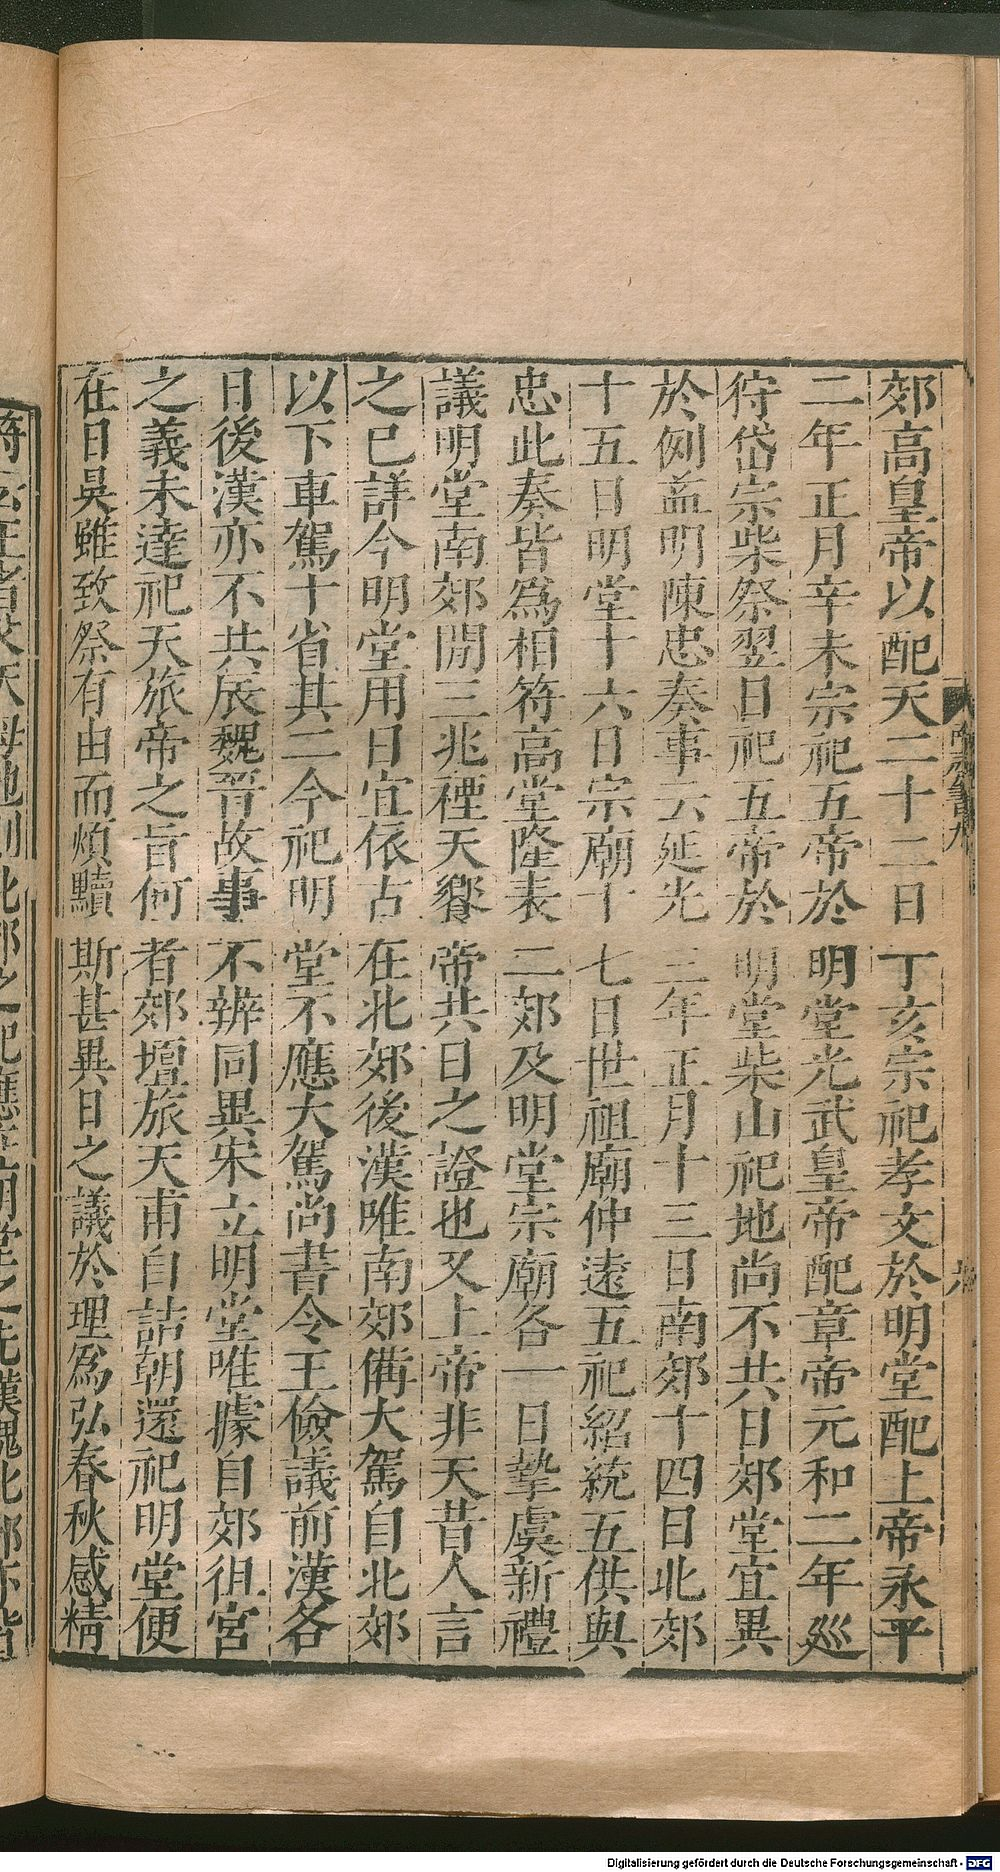 郊高皇帝以配天二十二日丁亥宗祀孝文於明堂配上帝永平
二年正月辛未宗祀五帝於明堂光武皇帝配章帝元和二年巡
狩岱宗柴祭翌日祀五帝於明堂柴山祀地尚不共日郊堂宜異
於例益明陳忠奏事云延光三年正月十三日南郊十四日北郊
十五日明堂十六日宗廟十七日世祖廟仲遠五祀紹統五供與
忠此奏皆爲相符高堂隆表二郊及明堂宗廟各一日摯虞新禮
議明堂南郊閒三兆禋天饗帝共日之證也又上帝非天昔人言
之已詳今明堂用日宜依古在北郊後漢唯南郊備大駕自北郊
以下車駕十省其二今祀明堂不應大駕尚書令王儉議前漢各
日後漢亦不共辰魏晉故事不辨同異宋立明堂唯據自郊徂宮
之義未達祀天旅帝之旨何者郊壇旅天甫自詰朝還祀明堂便
在日昃雖致祭有由而煩黷斯甚異日之議於理爲弘春秋感精
Digitalisierung gefördert durch die Deutsche Forschungsgemeinschaft - DFG